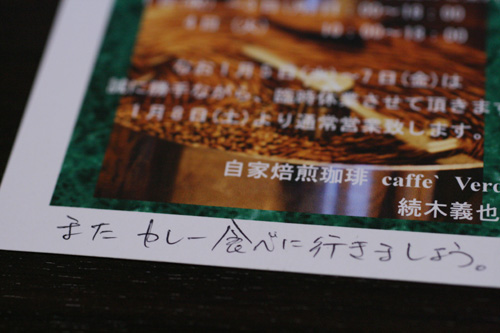 10:00~18:00
なお1月5日(水)~7日(金)は
誠に勝手ながら、臨時休業させて頂きます
1月8日(土)より通常営業致します。
自家焙煎珈琲 caffe` Vero
続木義也
また カレー食べに行きましょう。